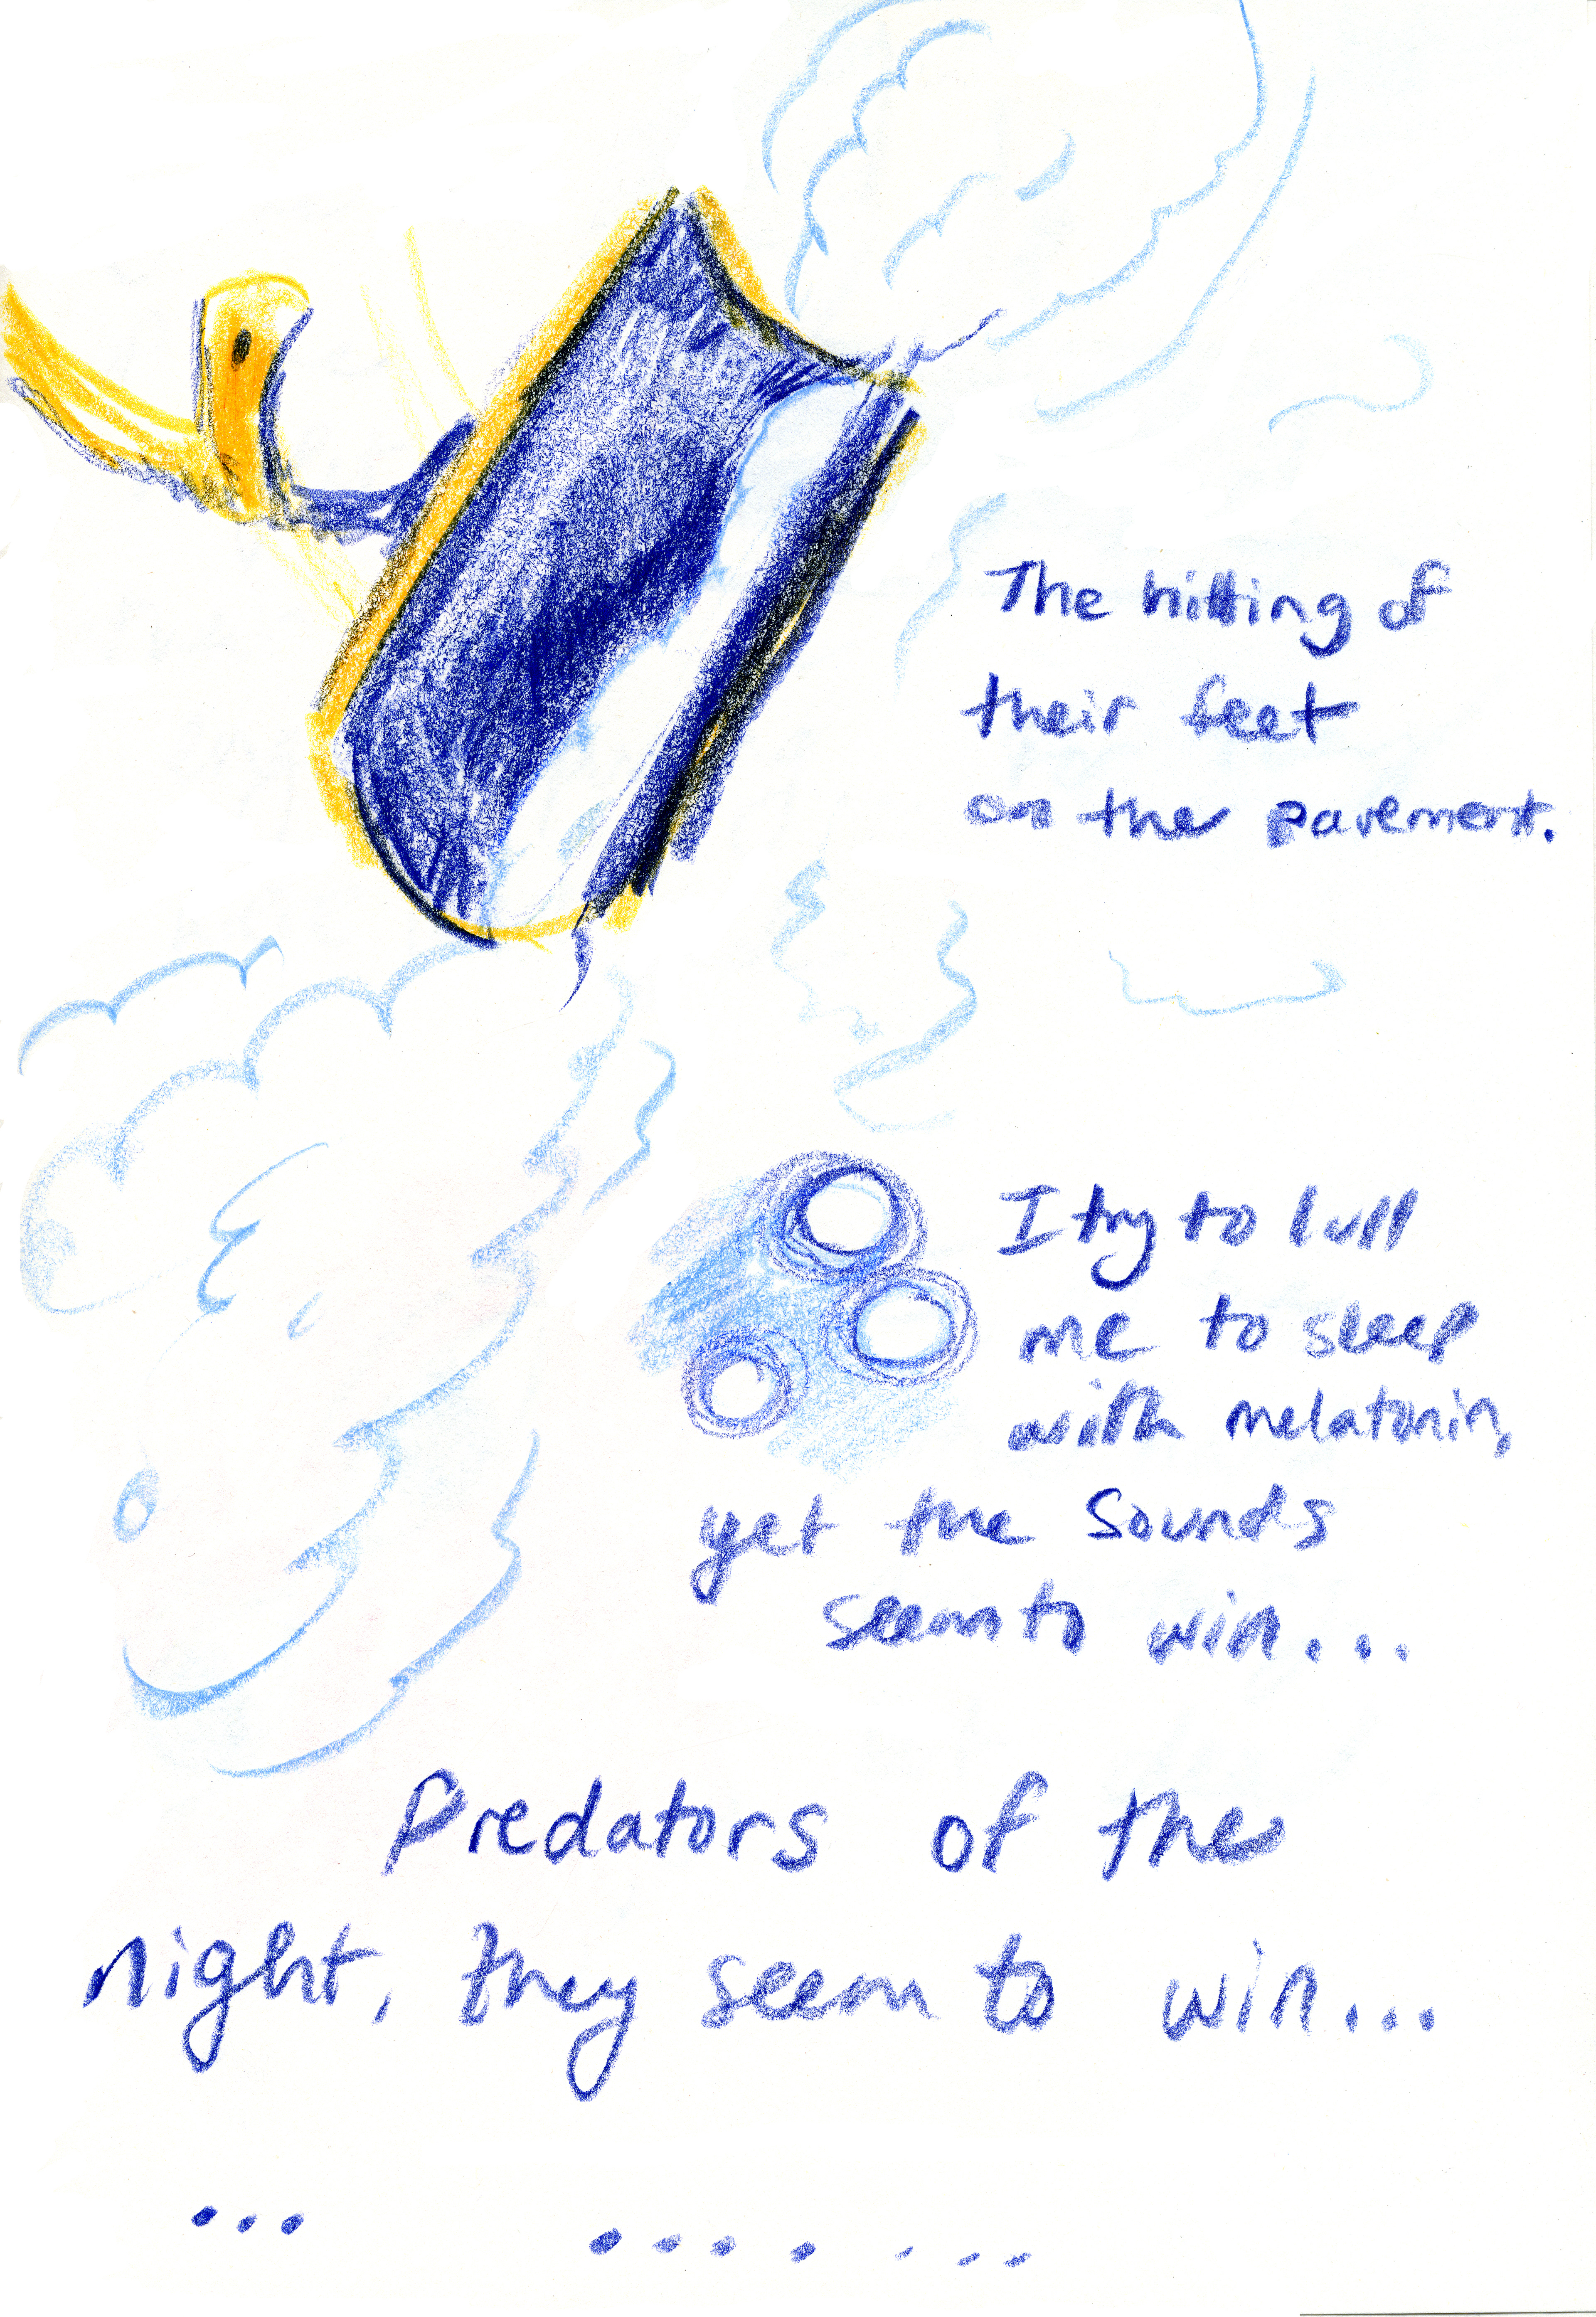 The hitting of
their feet
on the pavement.
I try to lull
me to sleep
with melatonin,
yet the sounds
seem to win...
Predators of the
night, they seem to win...
... .... ...